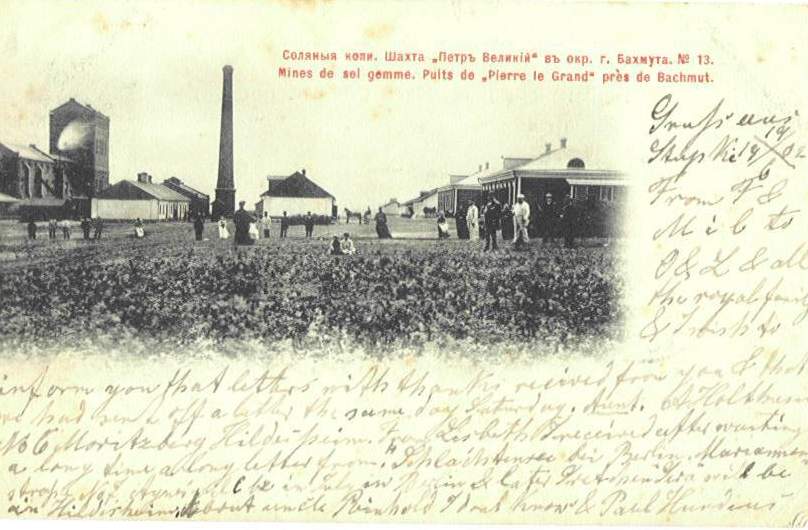 Соляныя копи. Шахта „Петръ Великій“ въ окр. г. Бахмута. № 13.
Mines de sel gemme. Puits de „Pierre le Grand“ près de Bachmut.
Gruss aus
Stupki 19/02
From F &
M i b to
O & L & all
the royal
& I wish to
inform you that letters with thanks recived from you & that
we had sent off a letter the same day Saturday. Aunt.
No 6 Moritzberg Hildesheim. From Lisbeth I received after waiting
a long time a long letter from „Schlachtensee bei Berlin, Mariannen
No be in Berlin & later will be
in Hildesheim. about uncle Reinhold I dont know & Paul